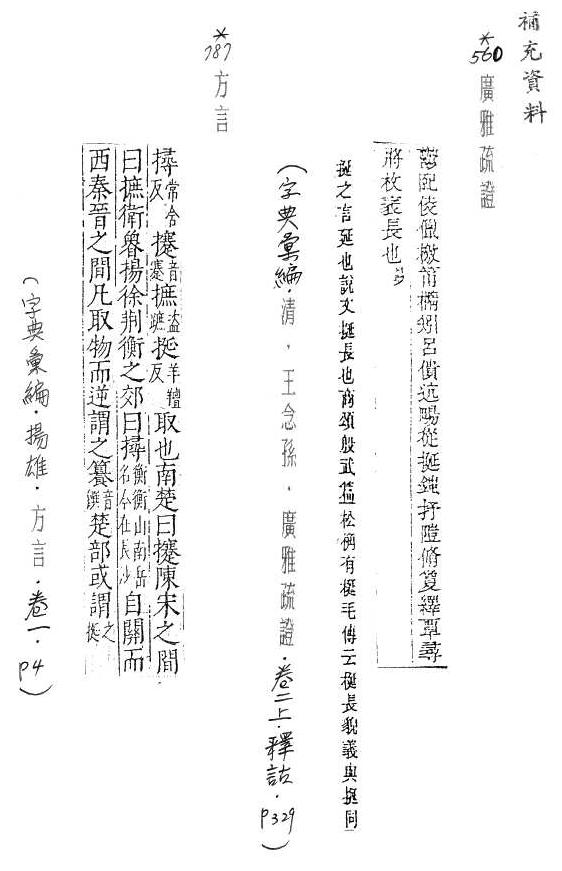 補充資料
*560 廣雅疏證
熙 佩 呂 遠暢從挺 抒隥脩夐繹覃尋
將枚 長也
挺之言延也說文挺長也商頌殷武篇松桷有梴毛傳云梴長貌義與挺同
(字典彙編.清.王念孫.廣雅疏證.卷二上.釋詁.P329)
*787 方言
撏常含反攓音蹇摭盜蹠挻羊羶反取也南楚曰攓陳宋之間
曰摭衛魯揚徐荆衡之郊曰撏衡衡山南岳名今在長沙自關而
西秦晉之間凡取物而逆謂之篡音饌楚部或謂之挻
(字典彙編.揚雄.方言.卷一.P4)